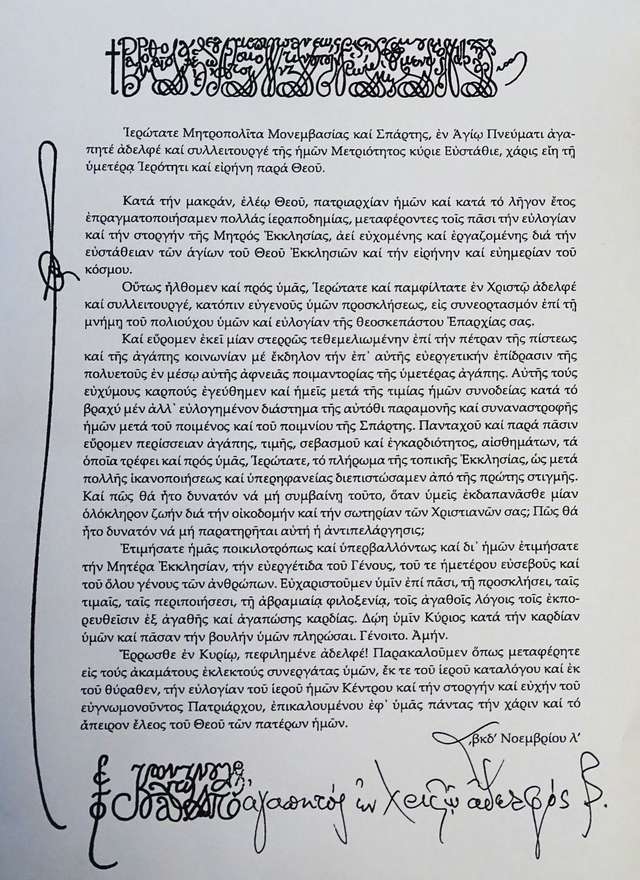 Ἱερώτατε Μητροπολῖτα Μονεμβασίας καί Σπάρτης, ἐν Ἁγίῳ Πνεύματι ἀγα-
πητέ ἀδελφέ καί συλλειτουργέ τῆς ἡμῶν Μετριότητος κύριε Εὐστάθιε, χάρις εἴη τῇ
ὑμετέρᾳ Ἱερότητι καί εἰρήνη παρά Θεοῦ.
Κατά τήν μακράν, ἐλέῳ Θεοῦ, πατριαρχίαν ἡμῶν καί κατά τό λῆγον ἔτος
ἐπραγματοποιήσαμεν πολλάς ἱεραποδημίας, μεταφέροντες τοῖς πᾶσι τήν εὐλογίαν
καί τήν στοργήν τῆς Μητρός Ἐκκλησίας, ἀεί εὐχομένης καί ἐργαζομένης διά τήν
εὐστάθειαν τῶν ἁγίων τοῦ Θεοῦ Ἐκκλησιῶν καί τήν εἰρήνην καί εὐημερίαν τοῦ
κόσμου.
Οὕτως ἤλθομεν καί πρός ὑμᾶς, Ἱερώτατε καί παμφίλτατε ἐν Χριστῷ ἀδελφέ
καί συλλειτουργέ, κατόπιν εὐγενοῦς ὑμῶν προσκλήσεως, εἰς συνεορτασμόν ἐπί τῇ
μνήμῃ τοῦ πολιούχου ὑμῶν καί εὐλογίαν τῆς θεοσκεπάστου Ἐπαρχίας σας.
Καί εὕρομεν ἐκεῖ μίαν στερρῶς τεθεμελιωμένην ἐπί τήν πέτραν τῆς πίστεως
καί τῆς ἀγάπης κοινωνίαν μέ ἔκδηλον τήν ἐπ᾽ αὐτῆς εὐεργετικήν ἐπίδρασιν τῆς
πολυετοῦς ἐν μέσῳ αὐτῆς ἀφνειᾶς ποιμαντορίας τῆς ὑμετέρας ἀγάπης. Αὐτῆς τούς
εὐχύμους καρπούς ἐγεύθημεν καί ἡμεῖς μετά τῆς τιμίας ἡμῶν συνοδείας κατά τό
βραχύ μέν ἀλλ᾽ εὐλογημένον διάστημα τῆς αὐτόθι παραμονῆς καί συναναστροφῆς
ἡμῶν μετά τοῦ ποιμένος καί τοῦ ποιμνίου τῆς Σπάρτης. Πανταχοῦ καί παρά πᾶσιν
εὕρομεν περίσσειαν ἀγάπης, τιμῆς, σεβασμοῦ καί ἐγκαρδιότητος, αἰσθημάτων, τά
ὁποῖα τρέφει καί πρός ὑμᾶς, Ἱερώτατε, τό πλήρωμα τῆς τοπικῆς Ἐκκλησίας, ὡς μετά
πολλῆς ἱκανοποιήσεως καί ὑπερηφανείας διεπιστώσαμεν ἀπό τῆς πρώτης στιγμῆς.
Καί πῶς θά ἦτο δυνατόν νά μή συμβαίνῃ τοῦτο, ὅταν ὑμεῖς ἐκδαπανᾶσθε μίαν
ὁλόκληρον ζωήν διά τήν οἰκοδομήν καί τήν σωτηρίαν τῶν Χριστιανῶν σας; Πῶς θά
ἦτο δυνατόν νά μή παρατηρῆται αὐτή ἡ ἀντιπελάργησις;
Ἐτιμήσατε ἡμᾶς ποικιλοτρόπως καί ὑπερβαλλόντως καί δι᾽ ἡμῶν ἐτιμήσατε
τήν Μητέρα Ἐκκλησίαν, τήν εὐεργέτιδα τοῦ Γένους, τοῦ τε ἡμετέρου εὐσεβοῦς καί
τοῦ ὅλου γένους τῶν ἀνθρώπων. Εὐχαριστοῦμεν ὑμῖν ἐπί πᾶσι, τῇ προσκλήσει, ταῖς
τιμαῖς, ταῖς περιποιήσεσι, τῇ ἀβραμιαίᾳ φιλοξενίᾳ, τοῖς ἀγαθοῖς λόγοις τοῖς ἐκπο-
ρευθεῖσιν ἐξ ἀγαθῆς καί ἀγαπώσης καρδίας. Δῴη ὑμῖν Κύριος κατά τήν καρδίαν
ὑμῶν καί πᾶσαν τήν βουλήν ὑμῶν πληρώσαι. Γένοιτο. Ἀμήν.
Ἔρρωσθε ἐν Κυρίῳ, πεφιλημένε ἀδελφέ! Παρακαλοῦμεν ὅπως μεταφέρητε
εἰς τούς ἀκαμάτους ἐκλεκτούς συνεργάτας ὑμῶν, ἔκ τε τοῦ ἱεροῦ καταλόγου καί ἐκ
τοῦ θύραθεν, τήν εὐλογίαν τοῦ ἱεροῦ ἡμῶν Κέντρου καί τήν στοργήν καί εὐχήν τοῦ
εὐγνωμονοῦντος Πατριάρχου, ἐπικαλουμένου ἐφ᾽ ὑμᾶς πάντας τήν χάριν καί τό
ἄπειρον ἔλεος τοῦ Θεοῦ τῶν πατέρων ἡμῶν.
͵βκδ´ Νοεμβρίου λ´
ἀγαπητός ἐν Χριστῷ ἀδελφός